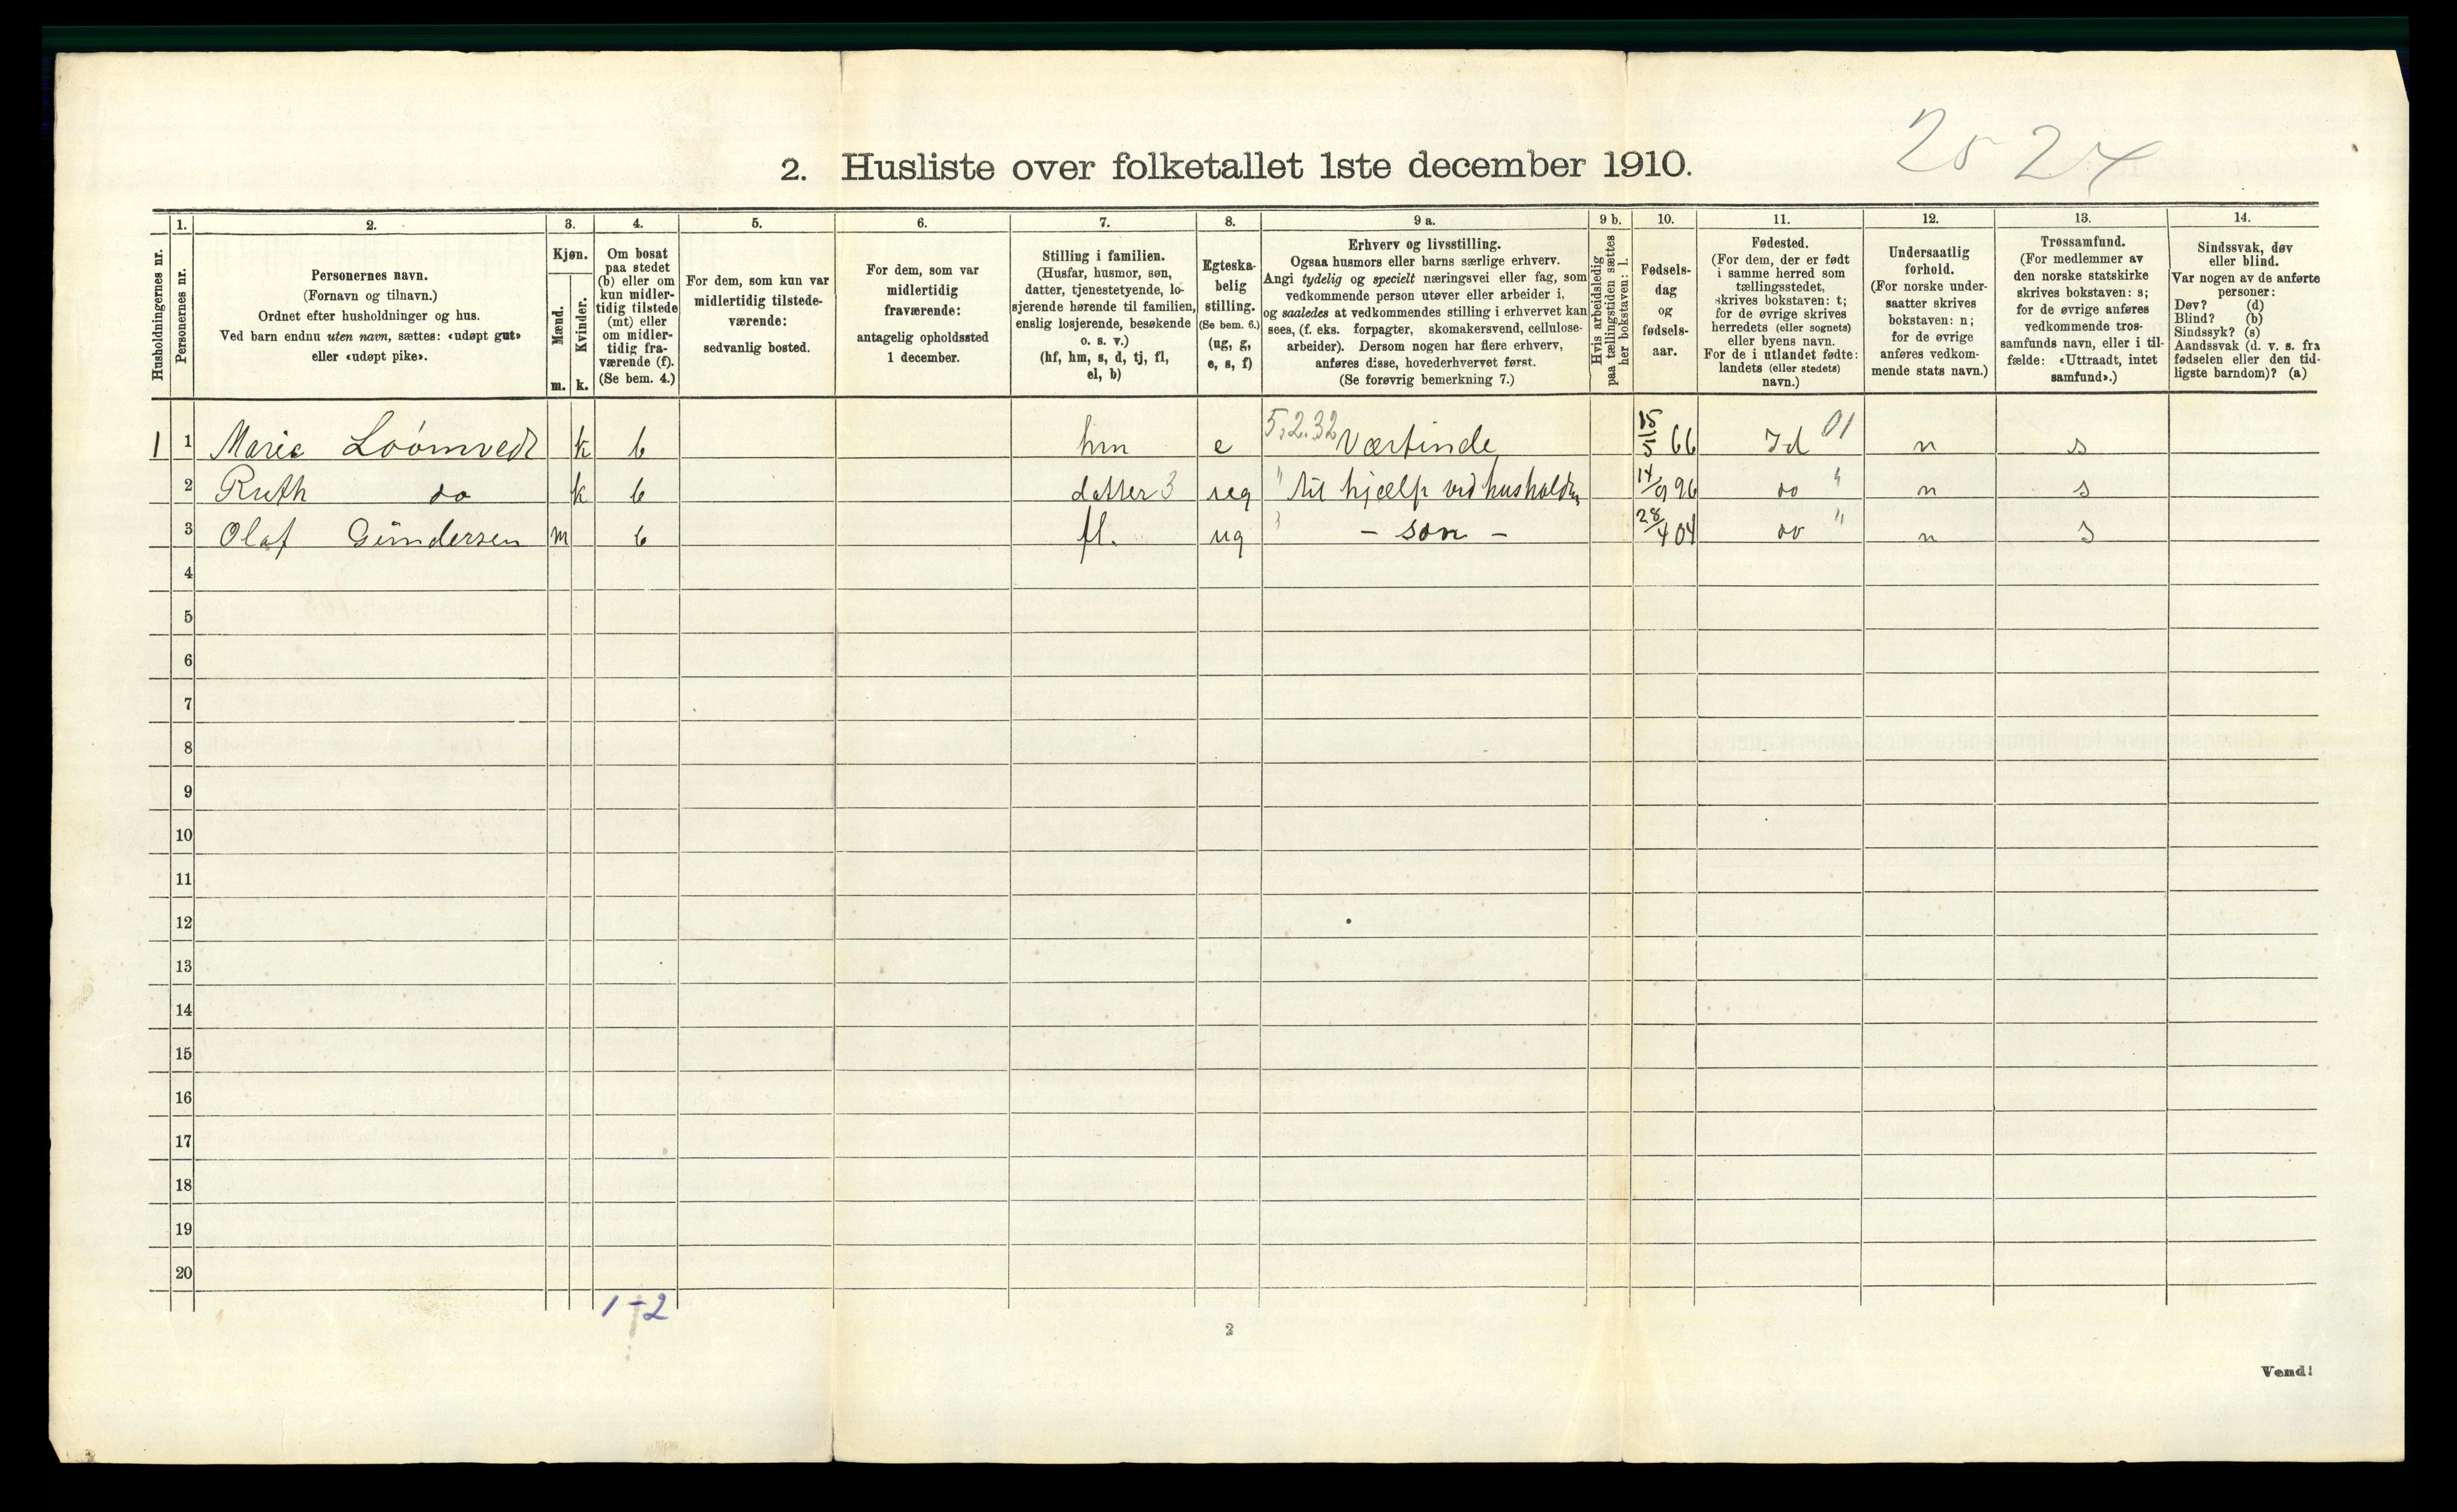 25 24
2. Husliste over folketallet 1ste december 1910.
Husholdningernes nr.
1.
Personernes nr.
2.
Personernes navn.
(Fornavn og tilnavn.)
Ordnet efter husholdninger og hus.
Ved barn endnu uten navn, sættes: «udøpt gut»
eller «udøpt pike».
3.
Kjøn.
Mænd.
Kvinder.
m.
k.
4.
Om bosat
paa stedet
(b) eller om
kun midler-
tidig tilstede
(mt) eller
om midler-
tidig fra-
værende (f).
(Se bem. 4.)
5.
For dem, som kun var
midlertidig tilstede-
værende:
sedvanlig bosted.
6.
For dem, som var
midlertidig
fraværende:
antagelig opholdssted
1 december.
7.
Stilling i familien.
(Husfar, husmor, søn,
datter, tjenestetyende, lo-
sjerende hørende til familien,
enslig losjerende, besøkende
o. s. v.)
(hf, hm, s, d, tj, fl,
el, b)
8.
Egteska-
belig
stilling.
(Se bem. 6.)
(ug, g,
e, s, f)
9 a.
Erhverv og livsstilling.
Ogsaa husmors eller barns særlige erhverv.
Angi tydelig og specielt næringsvei eller fag, som
vedkommende person utøver eller arbeider i,
og saaledes at vedkommendes stilling i erhvervet kan
sees, (f. eks. forpagter, skomakersvend, cellulose-
arbeider). Dersom nogen har flere erhverv,
anføres disse, hovederhvervet først.
(Se forøvrig bemerkning 7.)
9 b.
Hvis arbeidsledig
paa tællingstiden sættes
her bokstaven: l.
10.
Fødsels-
dag
og
fødsels-
aar.
11.
Fødested.
(For dem, der er født
i samme herred som
tællingsstedet,
skrives bokstaven: t;
for de øvrige skrives
herredets (eller sognets)
eller byens navn.
For de i utlandet fødte:
landets (eller stedets)
navn.)
12.
Undersaatlig
forhold.
(For norske under-
saatter skrives
bokstaven: n;
for de øvrige
anføres vedkom-
mende stats navn.)
13.
Trossamfund.
(For medlemmer av
den norske statskirke
skrives bokstaven: s;
for de øvrige anføres
vedkommende tros-
samfunds navn, eller i til-
fælde: «Uttraadt, intet
samfund».)
14.
Sindssvak, døv
eller blind.
Var nogen av de anførte
personer:
Døv? (d)
Blind? (b)
Sindssyk? (s)
Aandssvak (d. v. s. fra
fødselen eller den tid-
ligste barndom)? (a)
1 1 Marie Loømvedt k b hm e 5.2.32 Værtinde 15/5 66 Id 01 n s
2 Ruth do k b datter 3 ug " til hjælp ved husholdn 14/9 96 do " n s
3 Olaf Gundersen m b fl. ug " - søn - 28/4 04 do " n s
4
5
6
7
8
9
10
11
12
13
14
15
16
17
18
19
20
1-2
2
Vend!